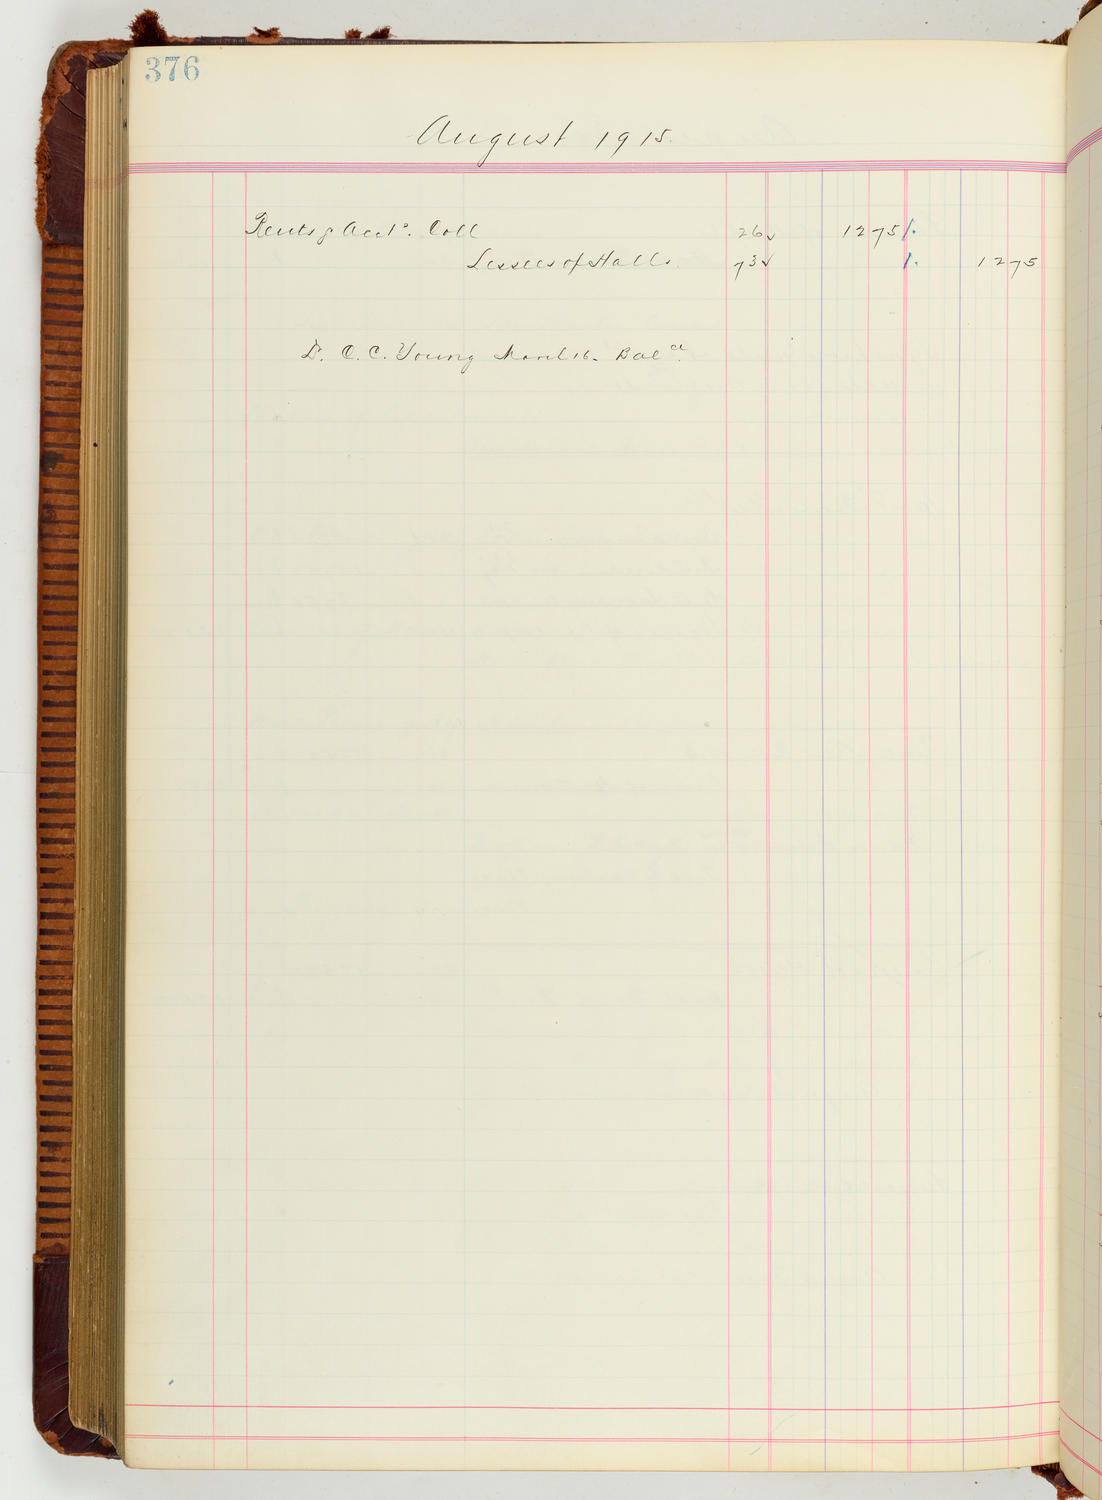 376
August 1915.
Rents & Accts. Coll 26 ✓ 1275
Lessees of Halls. 73 ✓ 1275
D. O. C. Young March 16. Bal